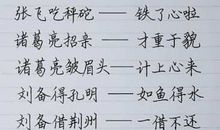 张飞吃秤砣——铁了心啦
诸葛亮招亲——才重于貌
诸葛亮皱眉头——计上心来
刘备得孔明——如鱼得水
刘备借荆州——一借不还